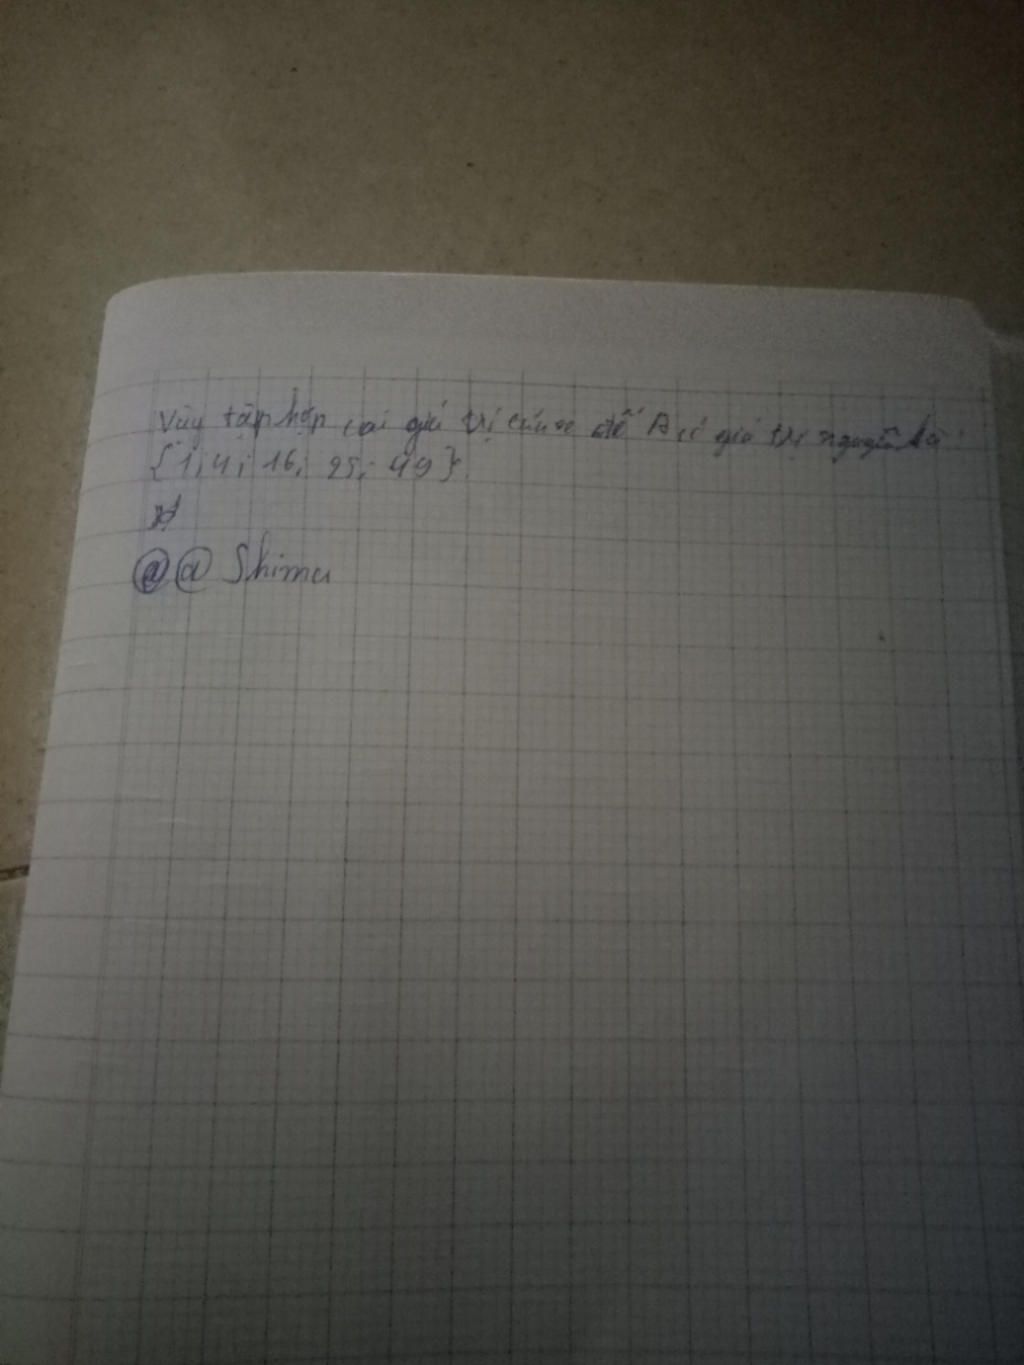 Vậy tập hợp các giá trị của x để A có giá trị nguyên là:
{1; 4; 16; 25; 49}.
@@ Shima